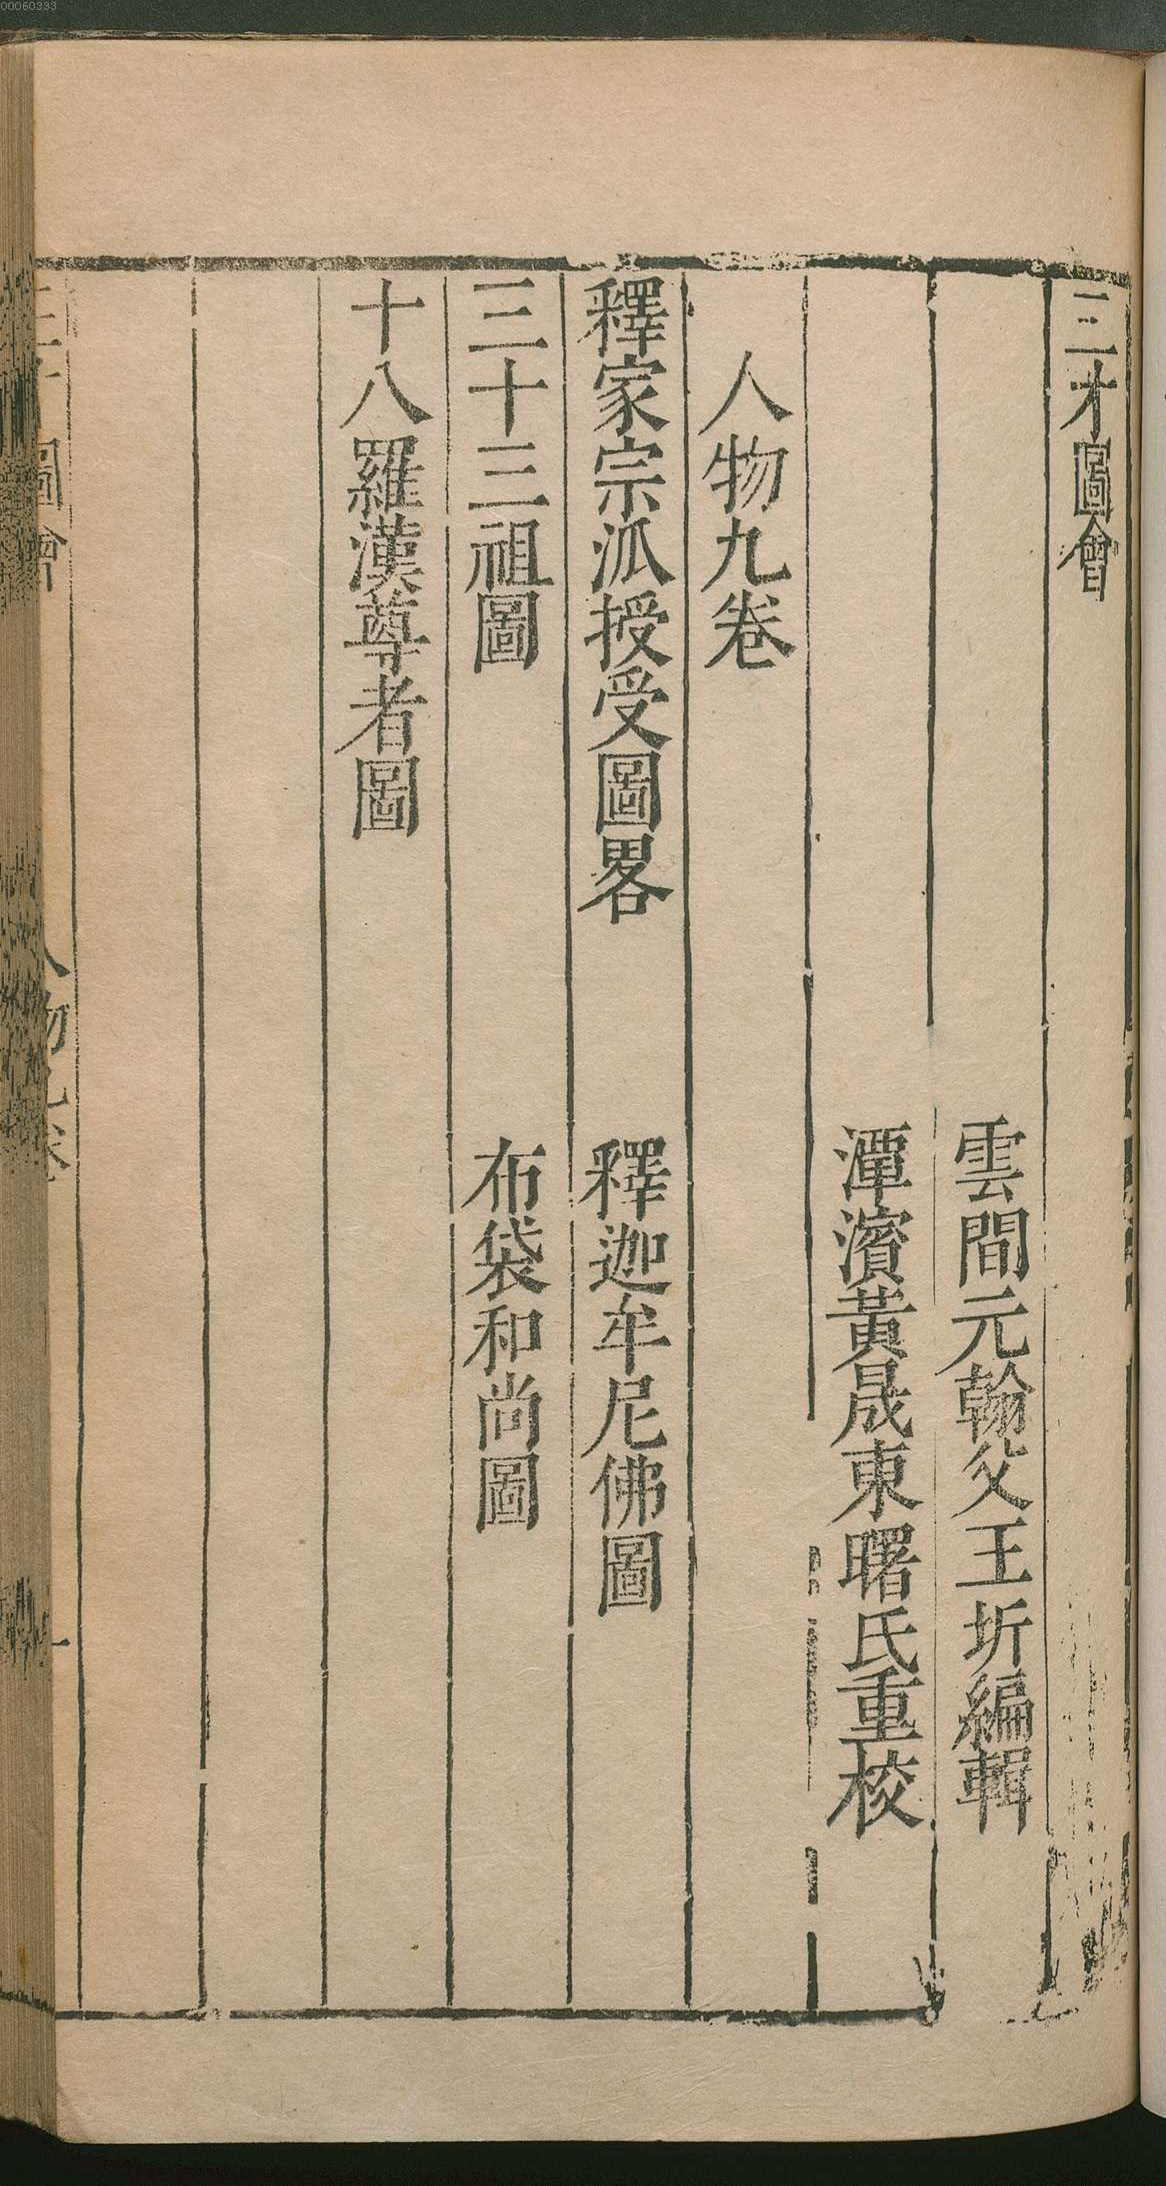 00060333
三才圖會
雲間元翰父王圻編輯
潭濱黃晟東曙氏重校
人物九卷
釋家宗派授受圖畧
釋迦牟尼佛圖
三十三祖圖
布袋和尚圖
十八羅漢尊者圖
圖會
物九卷
一